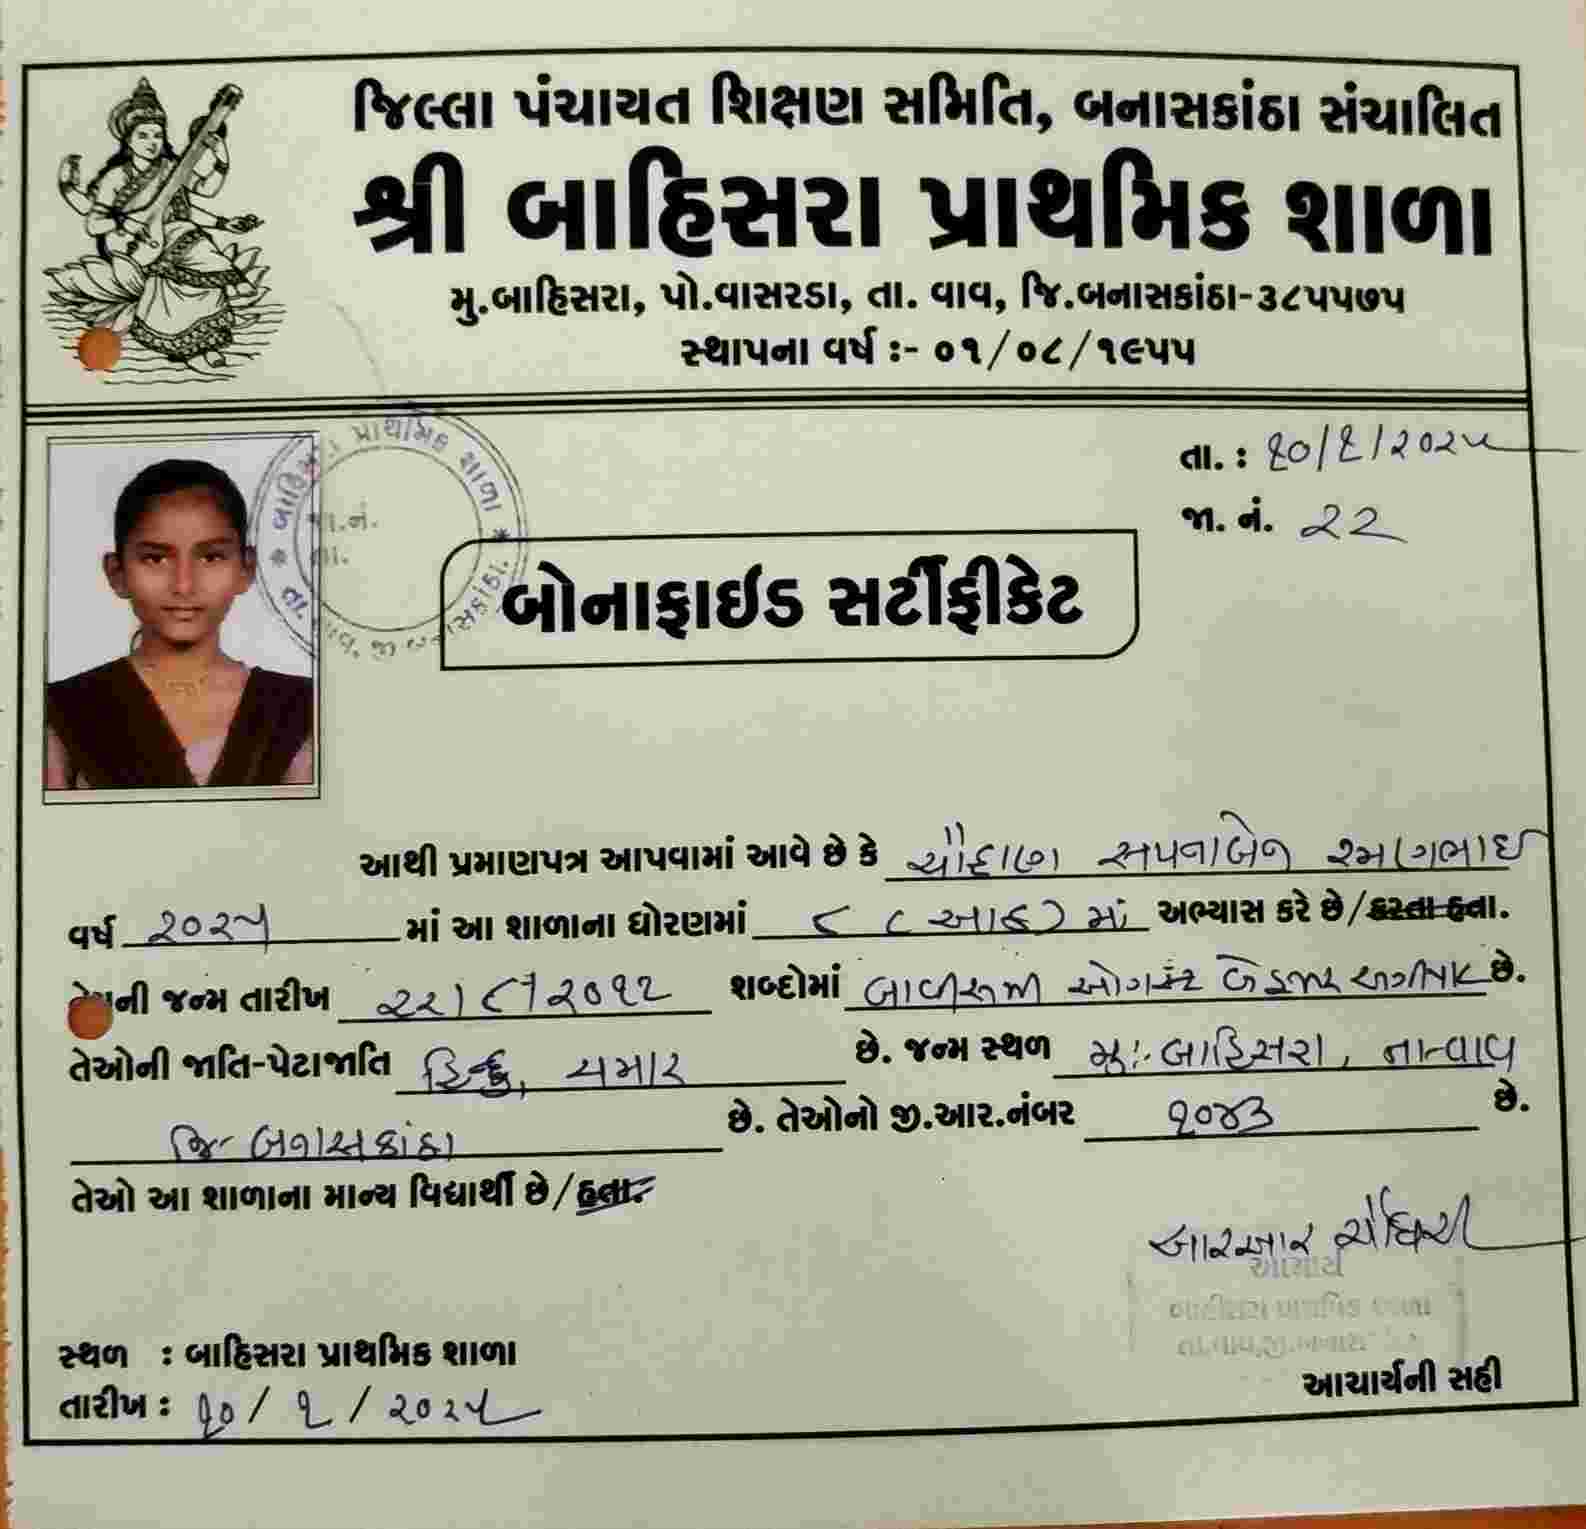 જિલ્લા પંચાયત શિક્ષણ સમિતિ, બનાસકાંઠા સંચાલિત
શ્રી બાહિસરા પ્રાથમિક શાળા
મુ.બાહિસરા, પો.વાસરડા, તા. વાવ, જિ.બનાસકાંઠા-૩૮૫૫૭૫
સ્થાપના વર્ષ :- ૦૧/૦૮/૧૯૫૫
બાહિસરા પ્રાથમિક શાળા * તા. વાવ, જી બનાસકાંઠા. *
જા.નં.
તા.
તા. : ૧૦/૧/૨૦૨૫
જા. નં. ૨૨
બોનાફાઇડ સર્ટીફીકેટ
આથી પ્રમાણપત્ર આપવામાં આવે છે કે ચૌહાણ સપનાબેન રમણભાઇ
વર્ષ ૨૦૨૫ માં આ શાળાના ધોરણમાં ૮ (આઠ) માં અભ્યાસ કરે છે/કરતા હતા.
તેમની જન્મ તારીખ ૨૨/૮/૨૦૧૨ શબ્દોમાં બાવીસમી ઓગસ્ટ બે હજાર છે.
તેઓની જાતિ-પેટાજાતિ હિન્દુ, ચમાર છે. જન્મ સ્થળ મુ:- બાહિસરા, તા-વાવ
જિ- બનાસકાંઠા છે. તેઓનો જી.આર.નંબર ૧૦૪૩ છે.
તેઓ આ શાળાના માન્ય વિદ્યાર્થી છે/હતા.
આરઆર ચૌધરી
આચાર્ય
બાહીસરા પ્રાથમિક શાળા
તા.વાવ,જી.બનાસ
સ્થળ : બાહિસરા પ્રાથમિક શાળા
તારીખ : ૧૦/૧/૨૦૨૫
આચાર્યની સહી